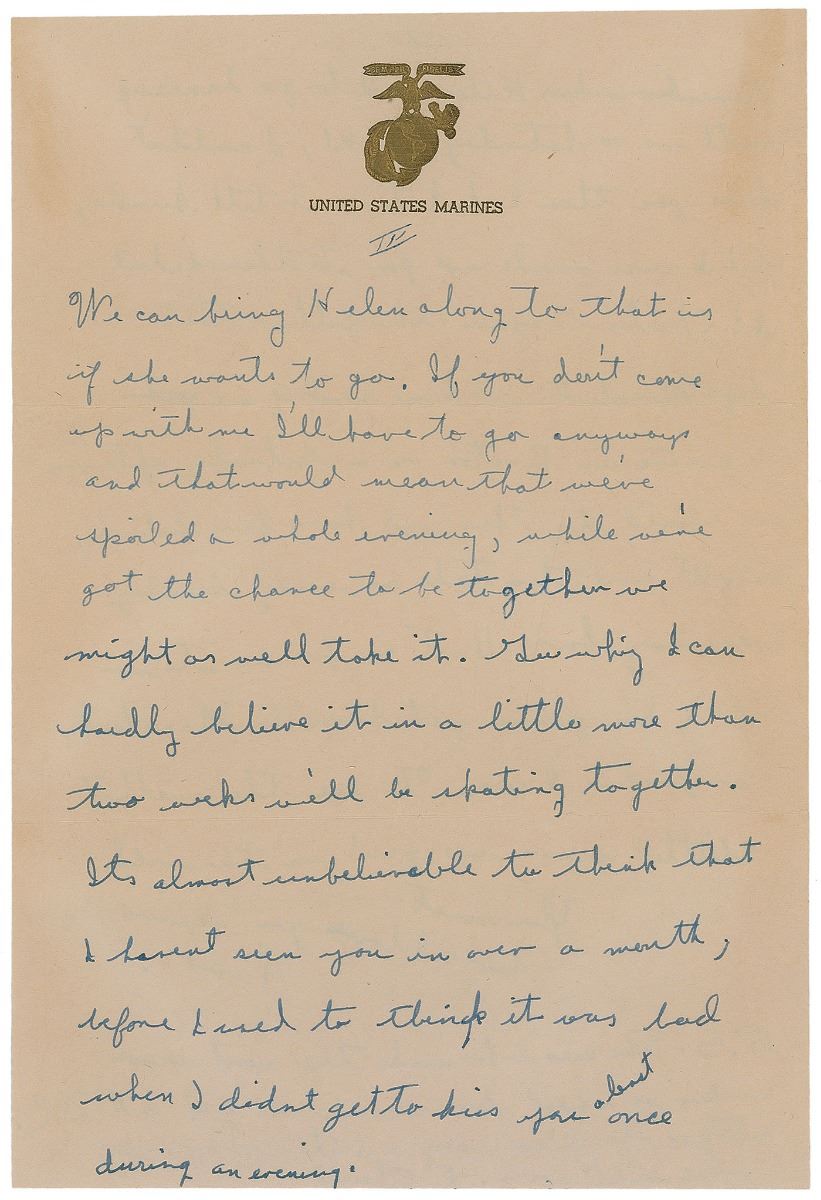 SEMPER FIDELIS
UNITED STATES MARINES
IV
We can bring Helen along to that is
if she wants to go. If you don't come
up with me I'll have to go anyways
and that would mean that we've
spoiled a whole evening, while we've
got the chance to be together we
might as well take it. Gee whiz I can
hardly believe it in a little more than
two weeks we'll be skating together.
Its almost unbelievable to think that
I havent seen you in over a month,
before I used to think it was bad
when I didnt get to kiss you atleast once
during an evening.